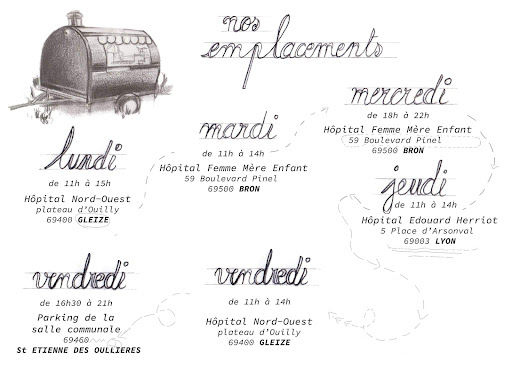 nos
emplacements
lundi
de 11h à 15h
Hôpital Nord-Ouest
plateau d'Ouilly
69400 GLEIZE
mardi
de 11h à 14h
Hôpital Femme Mère Enfant
59 Boulevard Pinel
69500 BRON
mercredi
de 18h à 22h
Hôpital Femme Mère Enfant
59 Boulevard Pinel
69500 BRON
jeudi
de 11h à 14h
Hôpital Edouard Herriot
5 Place d'Arsonval
69003 LYON
vendredi
de 11h à 14h
Hôpital Nord-Ouest
plateau d'Ouilly
69400 GLEIZE
vendredi
de 16h30 à 21h
Parking de la
salle communale
69460
St ETIENNE DES OULLIERES